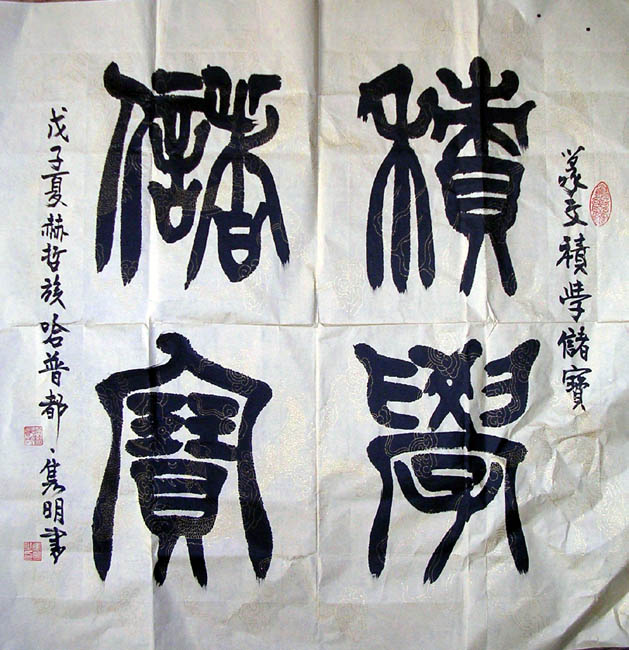 篆文積学儲寶
積學
儲寶
戊子夏赫哲族哈普都·隽明書